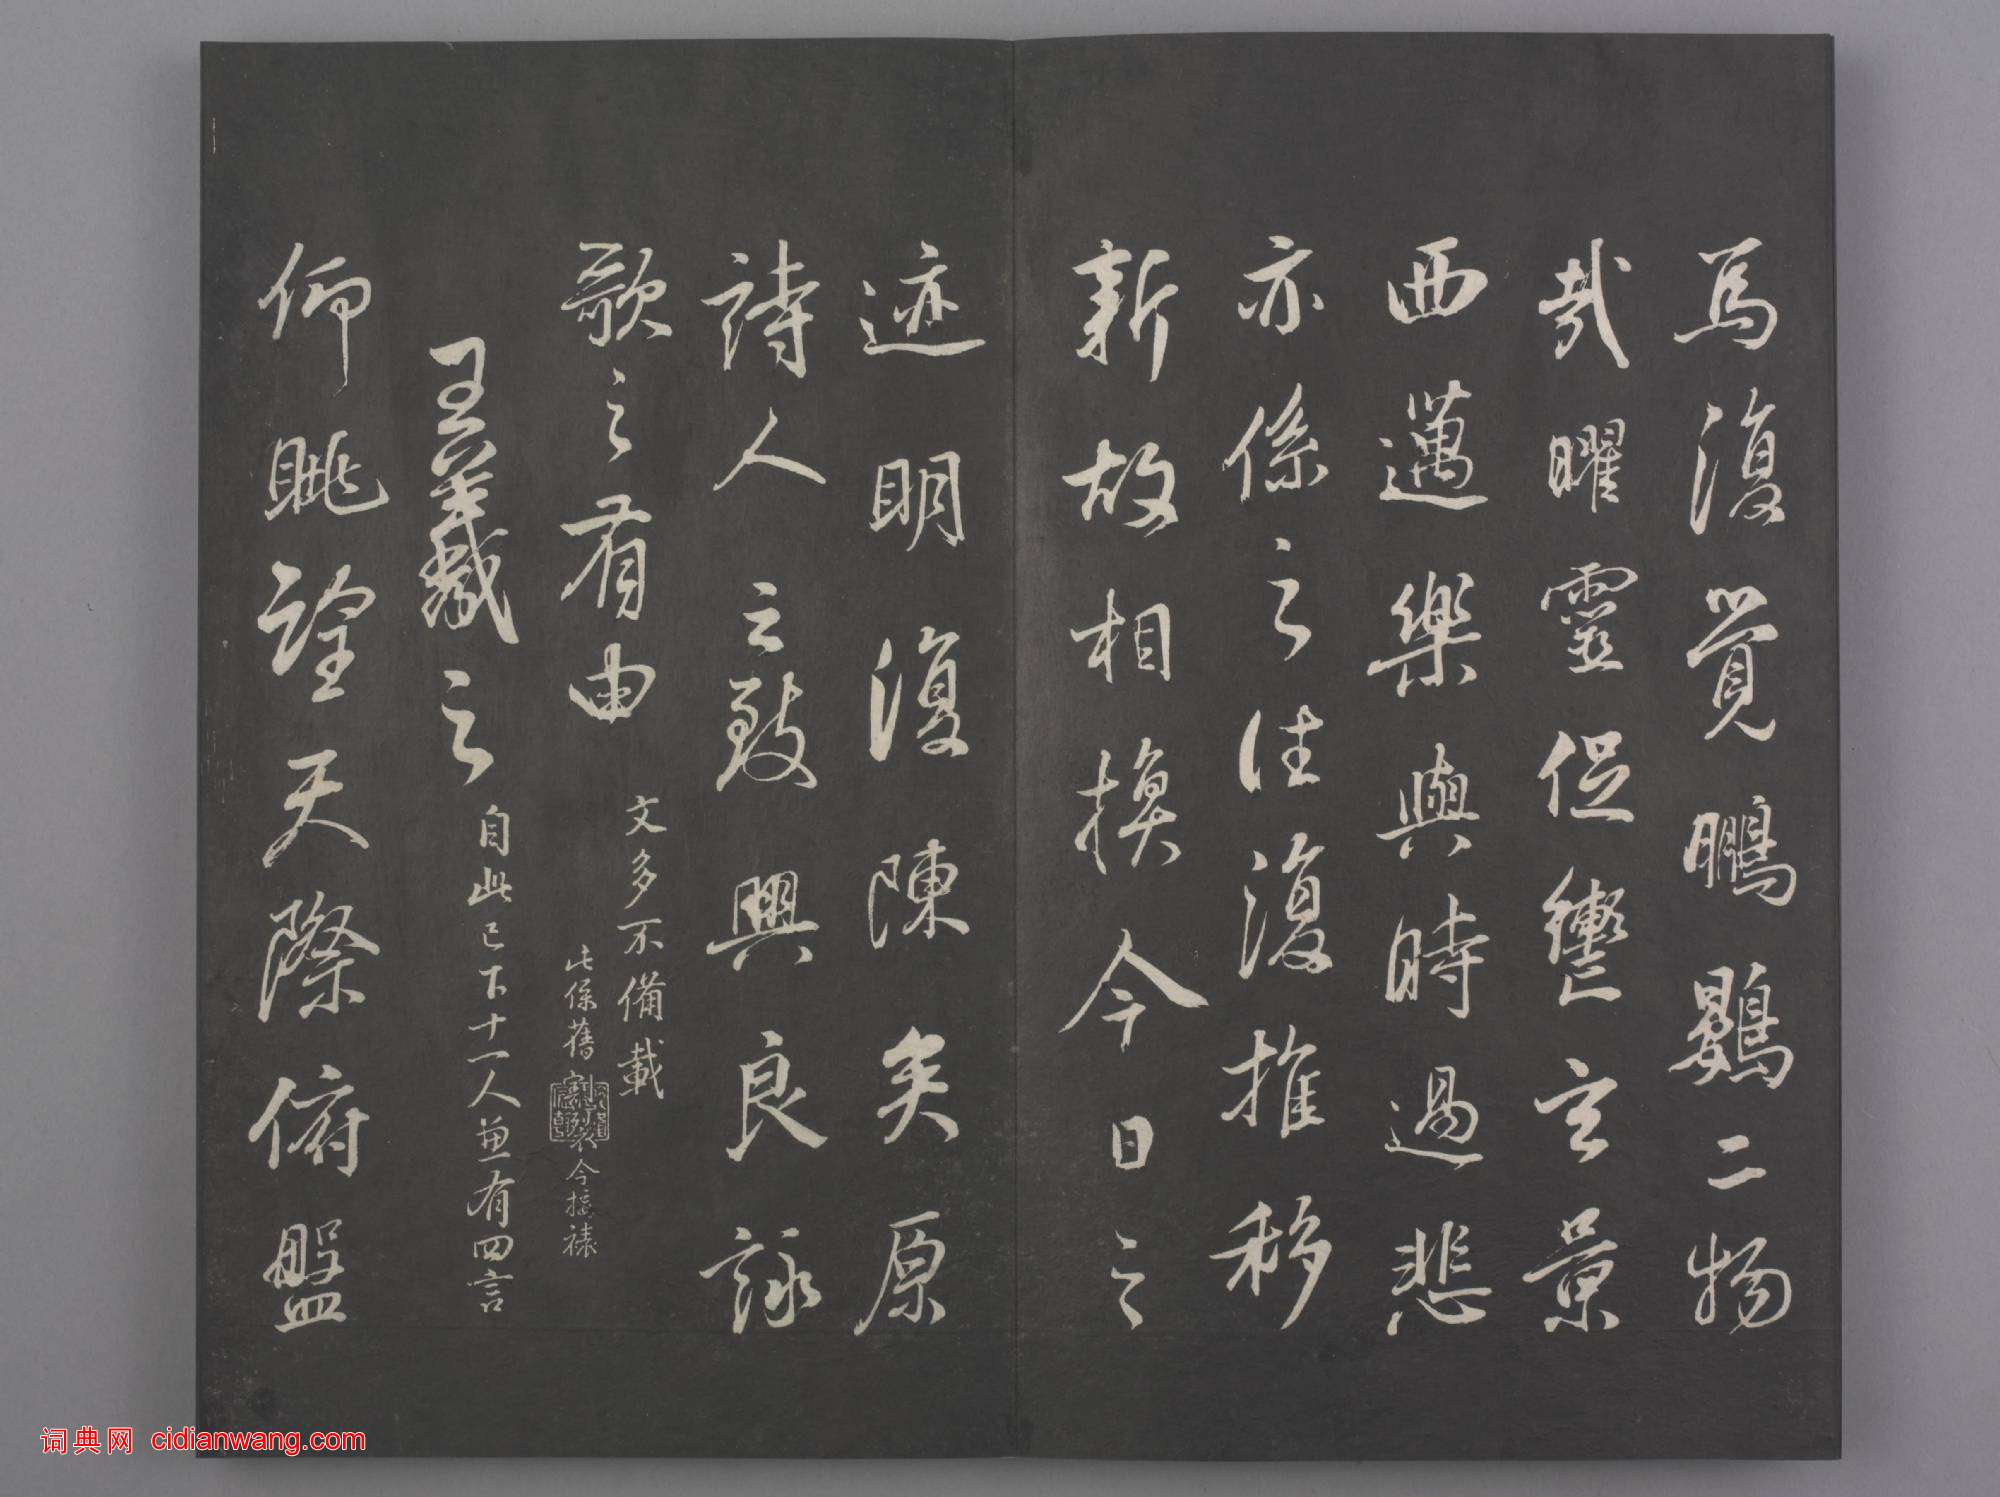 焉復覺鵬鷃二物
哉曜靈促轡玄景
西邁樂與時過悲
亦係之往復推移
新故相換今日之
迹明復陳矣原
詩人之致興良詠
歌之有由
文多不備載
此係舊割裂今接裱
王羲之
自此已下十一人兼有四言
仰眺望天際俯盤
词典网 cidianwang.com